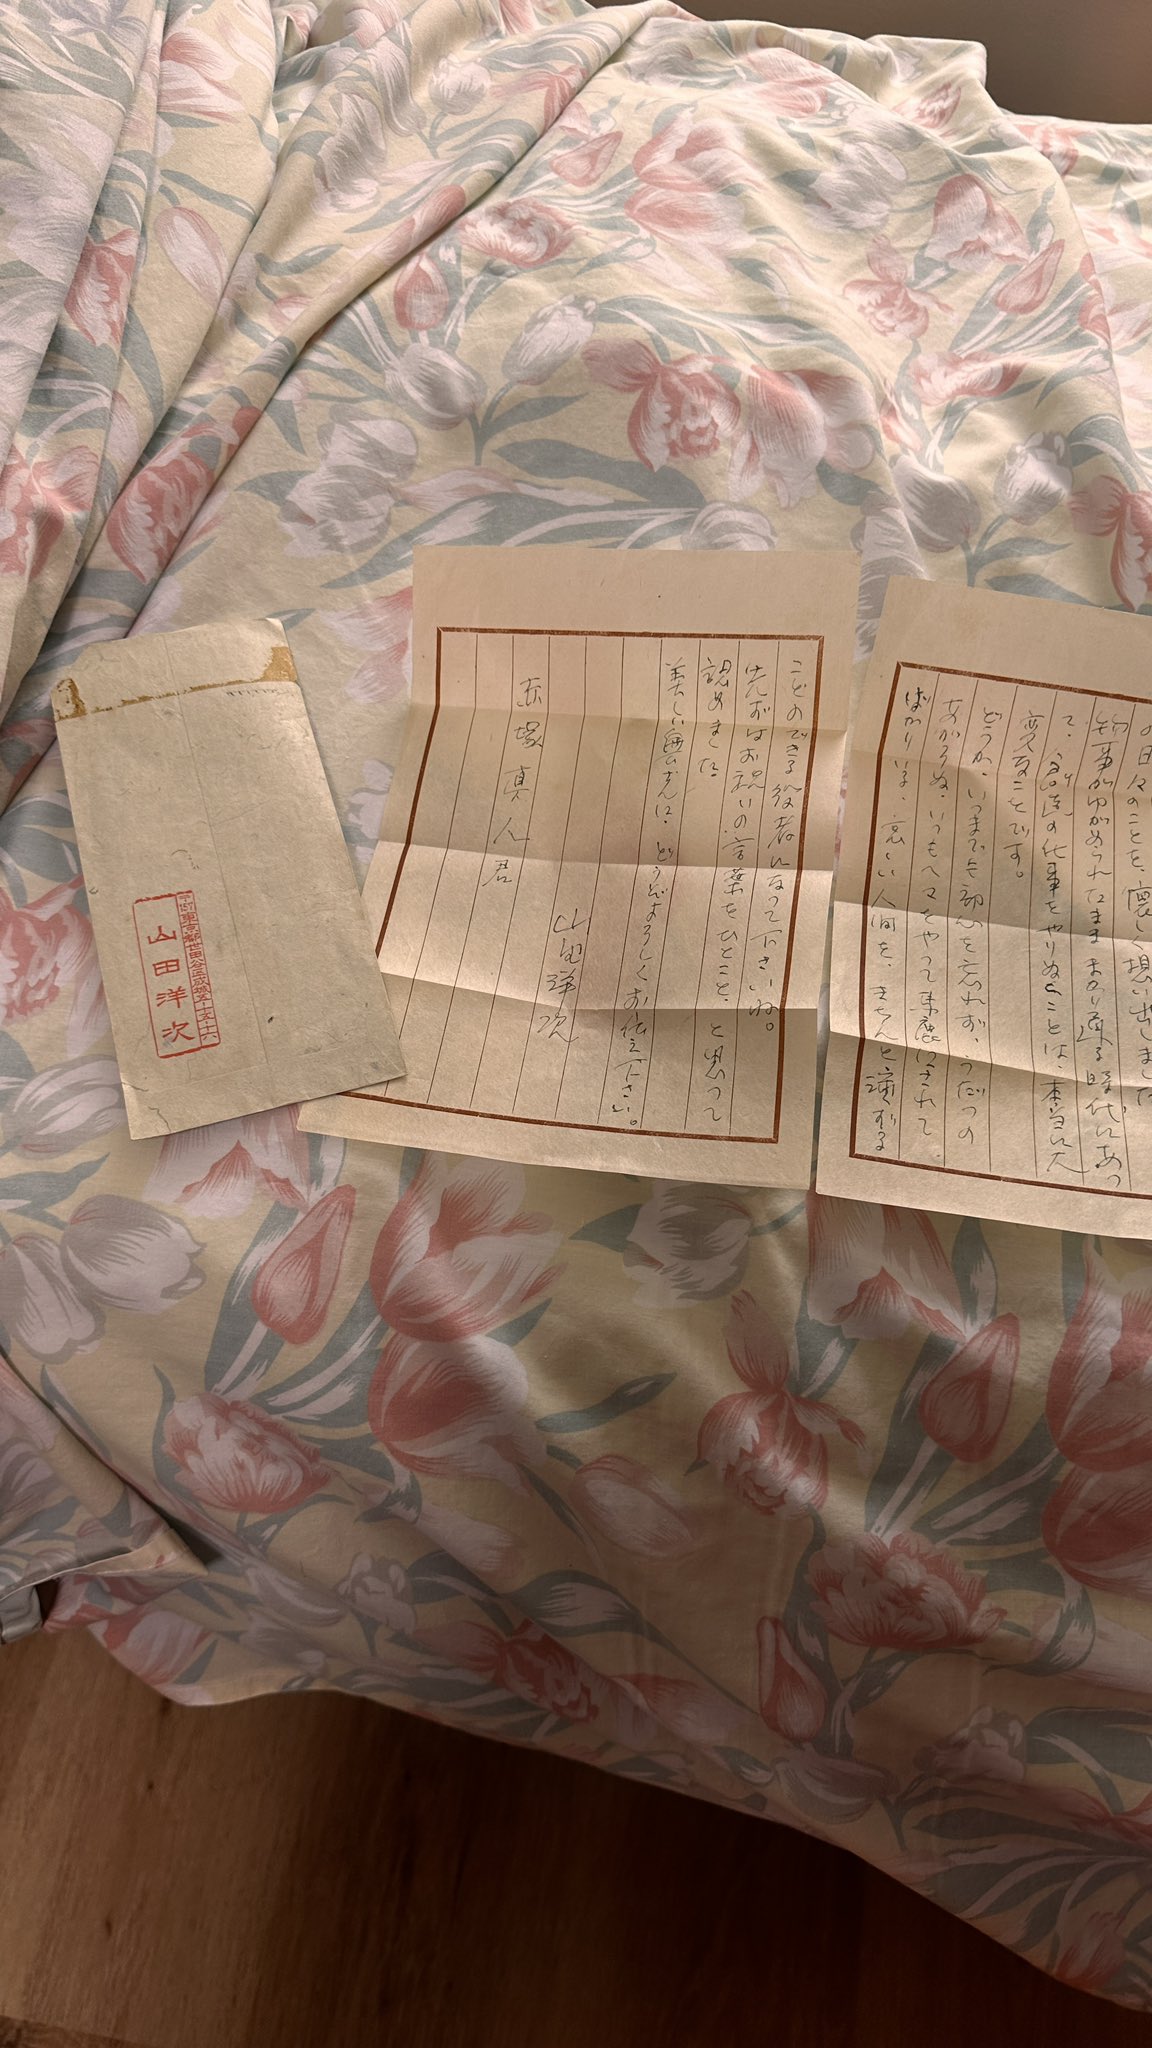 の日々のことを、懐しく想い出しました
物事がゆがめられたまままかり通る時代にあっ
て、創造の仕事をやりぬくことは、本当に大
変なことです。
どうか、いつまでも初心を忘れず、うだつの
あがらぬ、いつもヘマをやって馬鹿にされて
ばかりいる、哀しい人間を、きちんと演ずる
ことのできる役者になって下さいね。
先ずはお祝いの言葉をひとこと、と思って
認めました
美しい奥さんに、どうぞよろしくお伝え下さい。
山田洋次
赤塚真人君
東京都世田谷区成城
山田洋次